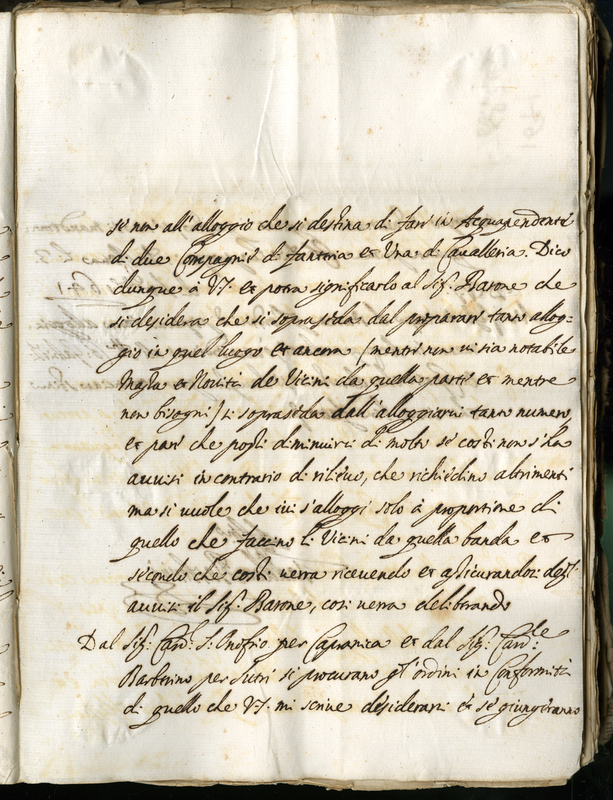 se non all'alloggio che si destina di farsi in Acquapendente
di due Compagnie di fanteria et Una di Cavalleria. Dico
dunque à V.S. et potrà significarlo al Sig.r Barone che
si desidera che si soprasieda dal preparare tanto allog-
gio in quel luogo et ancora (mentre non vi sia notabile
et Novità de Vicini da quella parte et mentre
non bisogni) si soprasieda dall'alloggiarvi tanto numero,
et pare che possi diminuirsi di molto se costì non s'ha
avvisi in contrario di rilievo, che richiedino altrimenti
ma si vuole che ivi s'alloggi solo à proportione di
quello che faccino li Vicini da quella banda et
secondo che costì verrà ricevendo et assicurandosi degl'
avvisi il Sig.r Barone, così verrà deliberando
Dal Sig.r Card.l S. Onofrio per Capranica et dal Sig.r Card.le
Barberino per Sutri si procurano gl'ordini in Conformità
di quello che V.S. mi scrive desiderarsi et se giungeranno